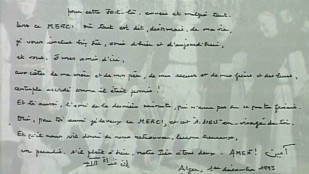 pour cette JOIE-là, envers et malgré tout.
Dans ce MERCI où tout est dit, désormais, de ma vie,
je vous inclus bien sûr, amis d'hier et d'aujourd'hui,
et vous, ô mes amis d'ici,
aux côtés de ma mère et de mon père, de mes sœurs et de mes frères et des leurs,
centuple accordé comme il était promis !
Et toi aussi, l'ami de la dernière minute, qui n'auras pas su ce que tu faisais.
Oui, pour toi aussi je le veux ce MERCI, et cet "A-DIEU" en-visagé de toi.
Et qu'il nous soit donné de nous retrouver, larrons heureux,
en paradis, s'il plaît à Dieu, notre Père à tous deux. AMEN !
Alger, 1er décembre 1993